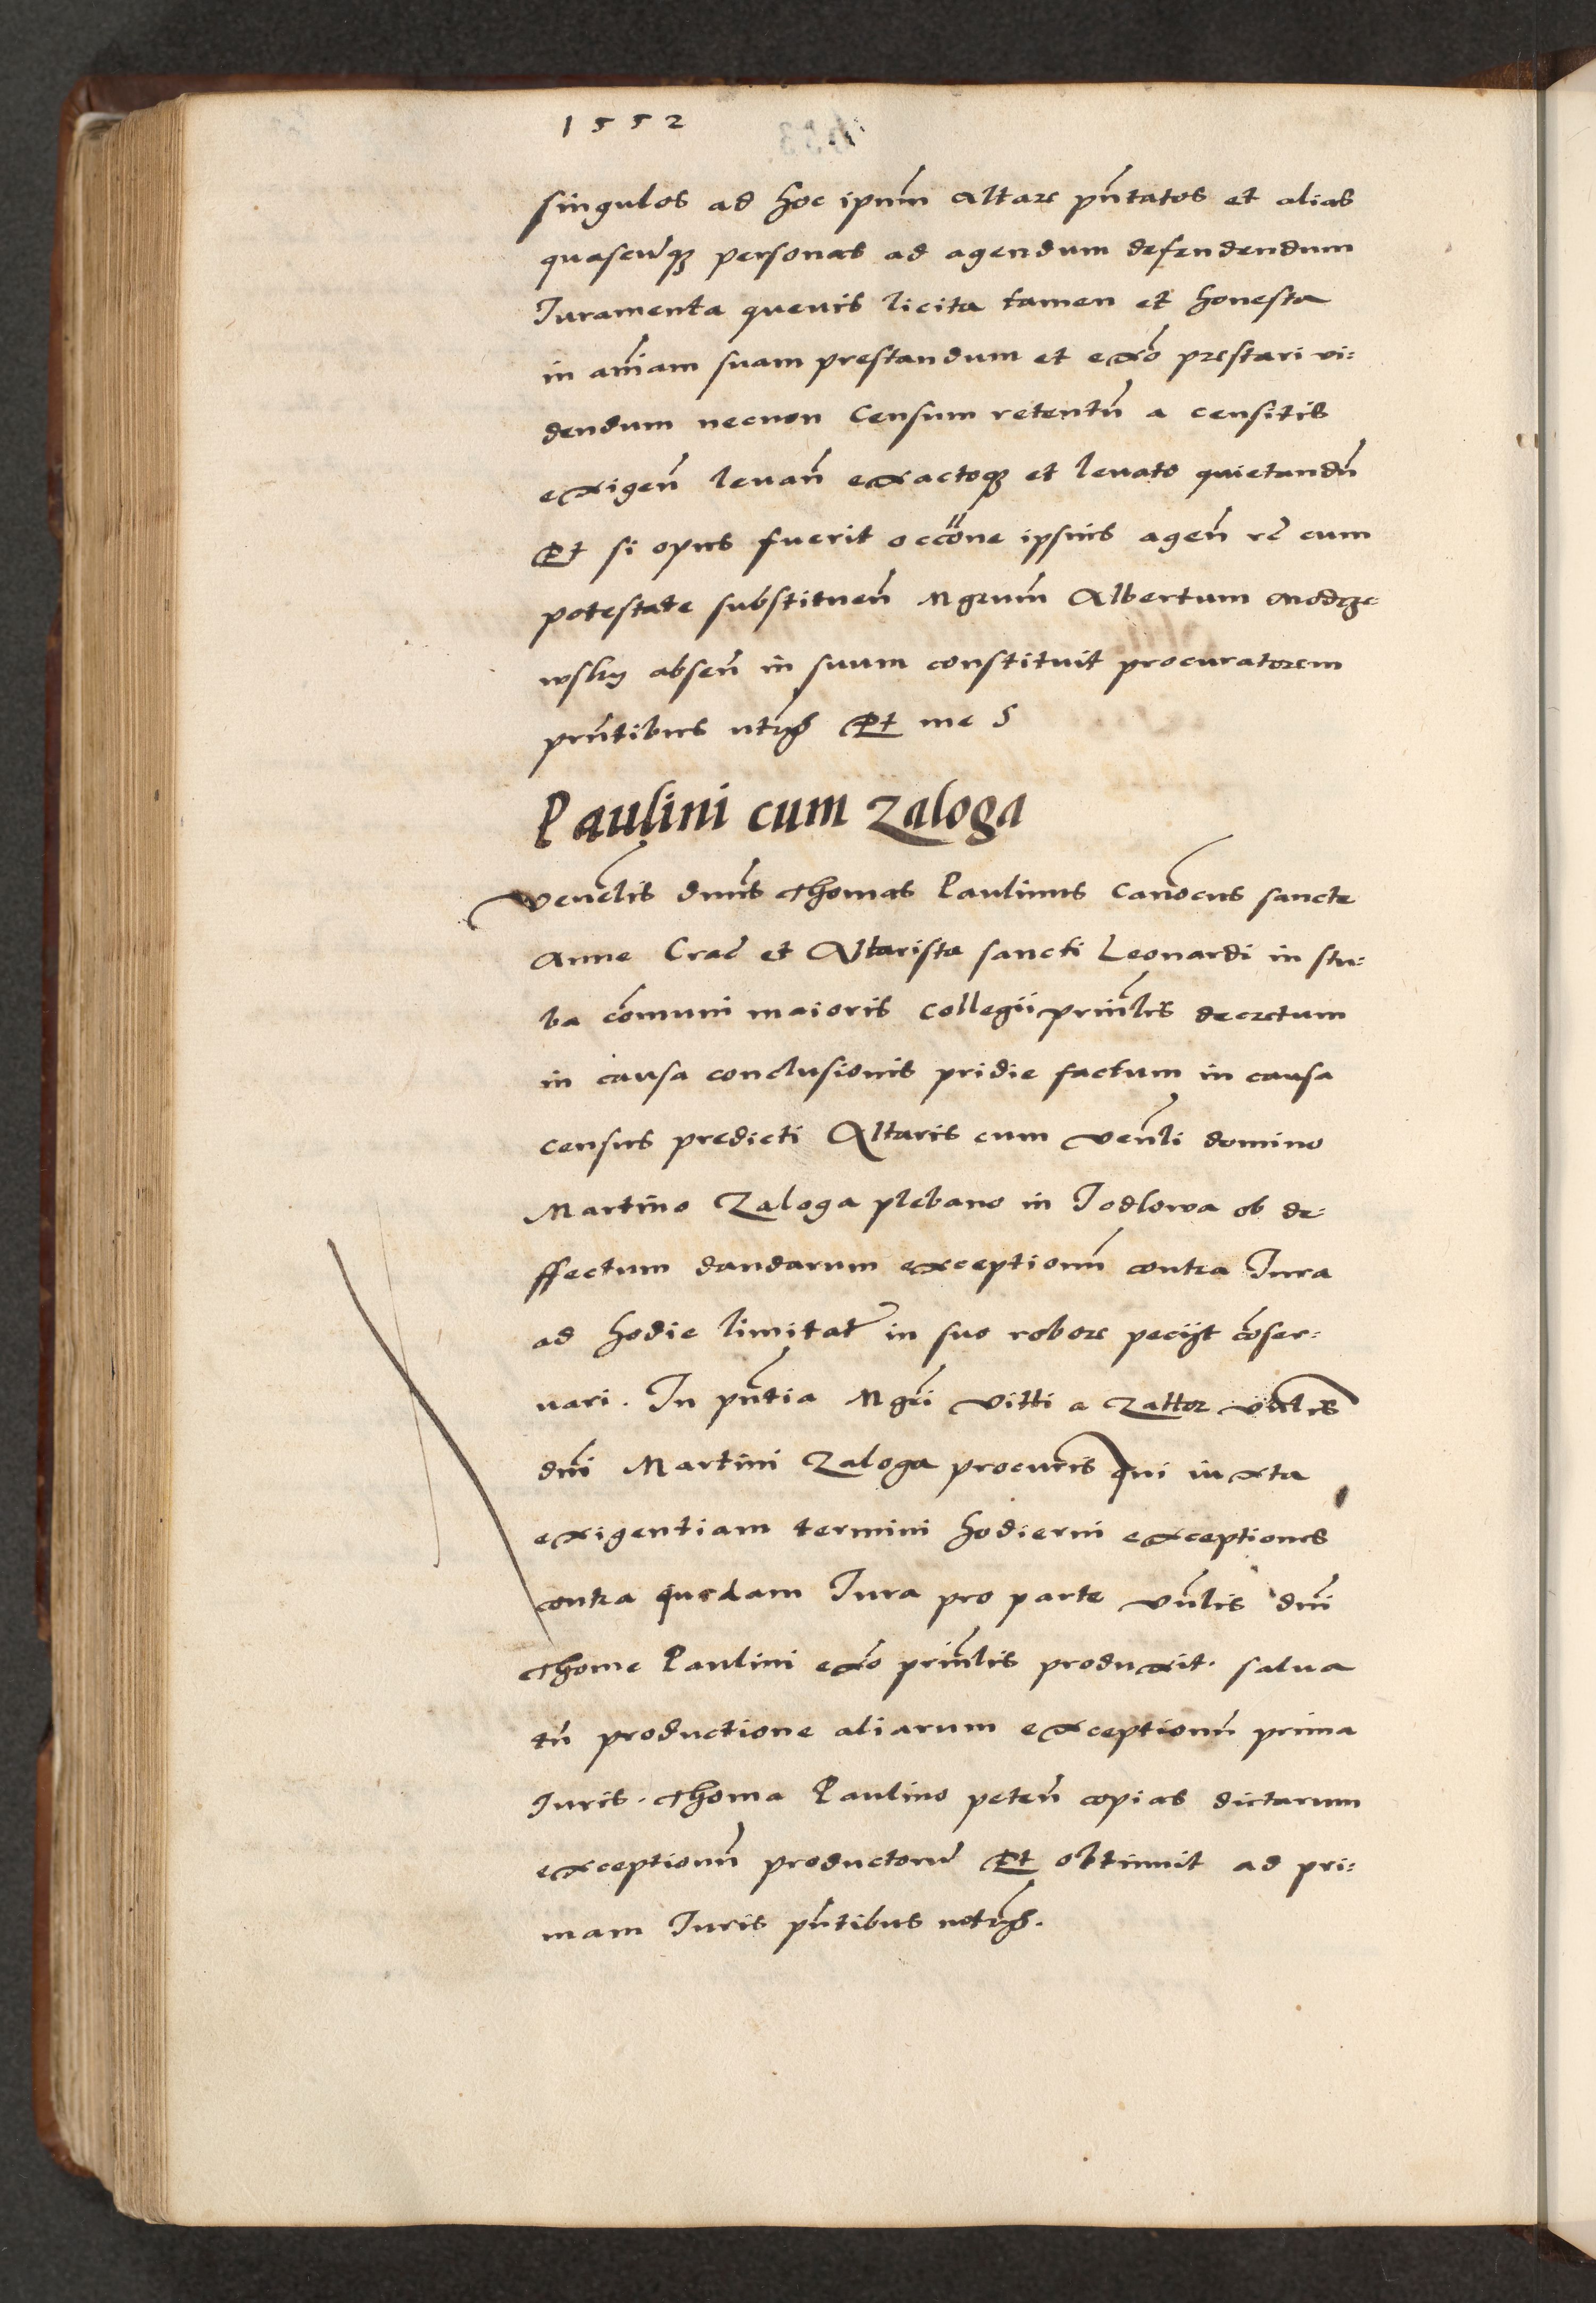 1552
singulos ad hoc ipm̃ altare pñtatos et alias
quascũq₃ personas ad agendum defendendum
Iuramenta quevis licita tamen et honesta
in am̃am suam prestandum et ex̃o prestari vi:
dendum necnon Censum retentũ a censitis
exigeñ levañ exactoq₃ et levato quietandũ
Et si opus fuerit occõne ipsius ageñ rc̃ cum
potestate substitueñ Mgrum̃ Albertum Modrze
wsky abseñ in suum constituit procuratorem
prñtibus Et me
Paulini cum Zaloga
Veneľis dnũs Thomas Paulinus Canõcus sancte
Anne Crac̃ et Altarista sancti Leonardi in stu:
ba cõmuni maioris Collegii prinľis decretum
in causa conclusionis pridie factum in causa
census predicti Altaris cum Venľi domino
Martino Zaloga plebano in Jodlowa ob de:
ffectum dandarum exceptionũ contra Iura
ad hodie limitat̃ in suo robore pecijt cõser:
vari. In pñtia Mgrĩ Vitti a Zathor
dnĩ Martini Zaloga procurĩs qui iuxta
exigentiam termini hodierni exceptiones
contra quedam Iura pro parte Vnľis dnĩ
Thome Paulini ex̃o prinľis produxit. salva
tñ productione aliarum exceptionũ prima
Iuris. Thoma Paulino peteñ copias dictarum
exceptionũ productorũ Et obtinuit ad pri:
mam Iuris pñtibus